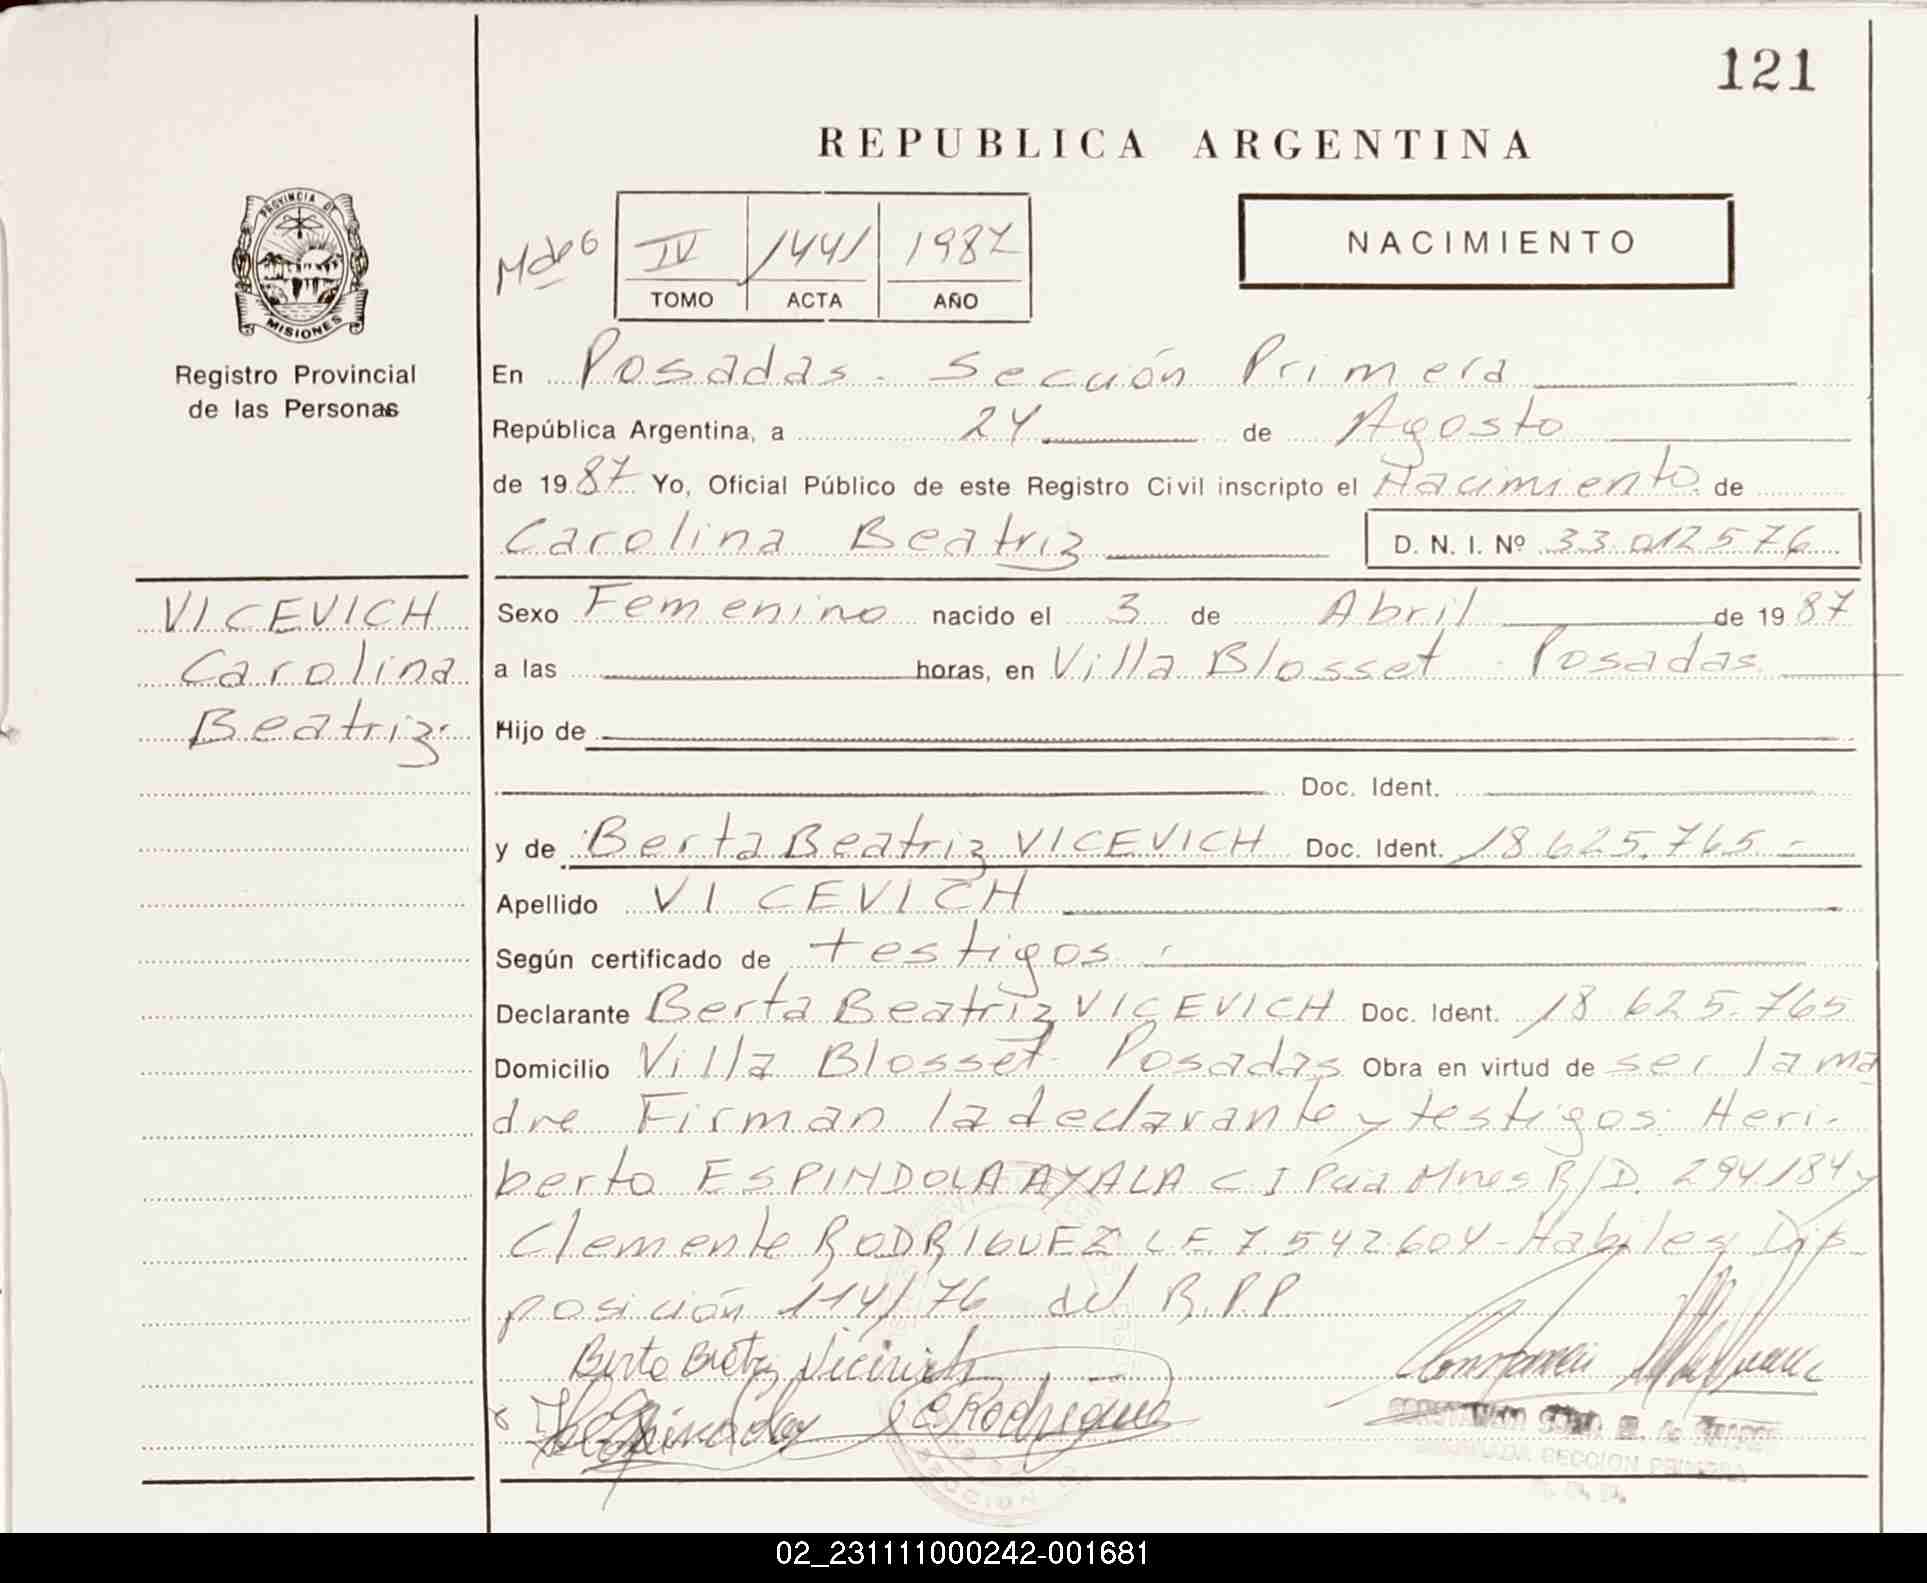 121
REPUBLICA ARGENTINA
PROVINCIA DE
MISIONES
Registro Provincial
de las Personas
M de 6
IV 1441 1987
TOMO ACTA AÑO
NACIMIENTO
En Posadas - Sección Primera
República Argentina, a 24 de Agosto
de 1987 Yo, Oficial Público de este Registro Civil inscripto el Nacimiento de
Carolina Beatriz D. N. I. Nº 33.012576
VICEVICH
Carolina
Beatriz
Sexo Femenino nacido el 3 de Abril de 1987
a las horas, en Villa Blosset - Posadas
Hijo de
Doc. Ident.
y de Berta Beatriz VICEVICH Doc. Ident. 18.625.765 -
Apellido VICEVICH
Según certificado de testigos
Declarante Berta Beatriz VICEVICH Doc. Ident. 18.625.765
Domicilio Villa Blosset - Posadas Obra en virtud de ser la ma
dre Firman la declarante y testigos: Heri-
berto ESPINDOLA AYALA C I Pcia Mnes R/D. 294.184 y
Clemente RODRIGUEZ L E 7.542.604 - Habiles Dis-
posición 114/76 del R.P.P
Berta Beatriz Vicevich
C. Rodriguez
SECCION PRIMERA
02_231111000242-001681